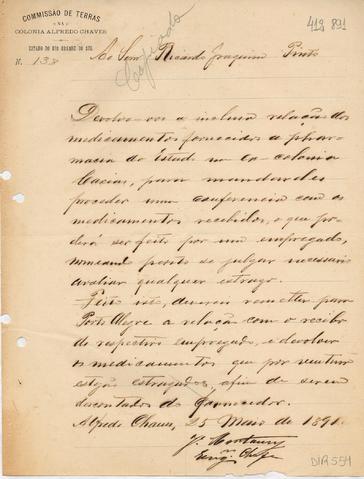 COMMISSÃO DE TERRAS
NA
COLONIA ALFREDO CHAVES
ESTADO DO RIO GRANDE DO SUL
N. 138
Ao Snr. Ricardo Joaquim Pinto
Copiado
Devolvo-vos a inclusa relação dos
medicamentos fornecidos a phar-
macia do Estado na Ex-colonia
Caxias, para mandardes
proceder uma conferencia com os
medicamentos recebidos, o que po-
derá ser feito por um empregado,
nomeando perito se julgar necessario
avaliar qualquer estrago.
Feito isto, devereis remetter para
Porto Alegre a relação com o recibo
do respectivo empregado, e devolver
os medicamentos que por ventura
estejão estragados, afim de serem
descontados do fornecedor.
Alfredo Chaves, 25 Maio de 1891.
J. Montaury
Engº Chefe
DIR 554